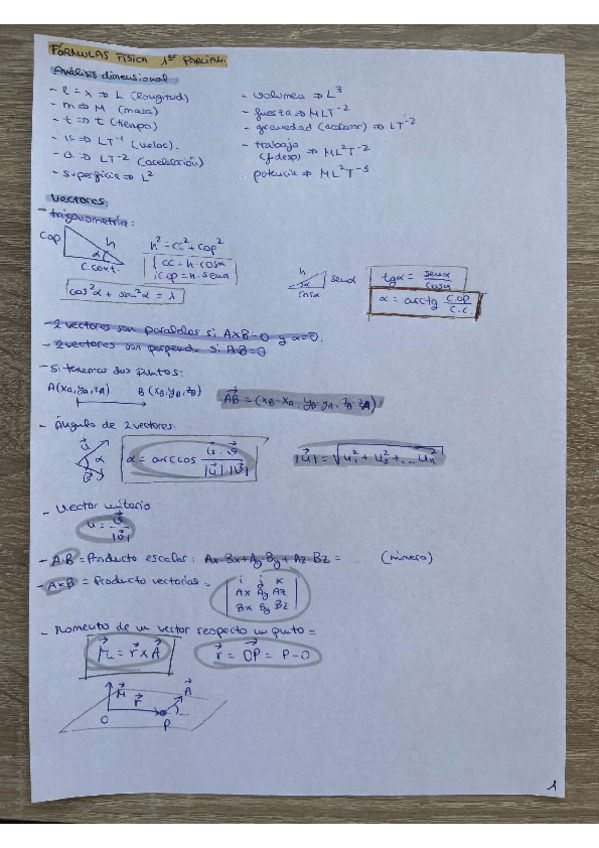 FÓRMULAS FÍSICA 1er PARCIAL.
Análisis dimensional
- l = x ⇒ L (longitud)
- m ⇒ M (masa)
- t ⇒ t (tiempo)
- v ⇒ LT⁻¹ (veloc).
- a ⇒ LT⁻² (aceleración)
- superficie ⇒ L²
- volumen ⇒ L³
- fuerza ⇒ MLT⁻²
- gravedad (aceleraz) ⇒ LT⁻²
- trabajo (f.desp) ⇒ ML²T⁻²
potencia ⇒ ML²T⁻³
Vectores
- trigonometría:
Cop h α C.cont.
h² = cc² + cop²
cc = h · cosα
cop = h · senα
cos²α + sen²α = 1
h α senα cosα
tgα = senα / cosα
α = arctg c.op / c.c.
- 2 vectores son paralelos si A×B=0 y α=0.
- 2 vectores son perpend. si A·B=0
- Si tenemos dos puntos:
A(xA, yA, zA) B(xB, yB, zB)
AB⃗ = (xB-xA, yB-yA, zB-zA)
- Ángulo de 2 vectores
u⃗ α v⃗
α = arccos u⃗ · v⃗ / |u⃗| |v⃗|
|u⃗| = √u₁² + u₂² + ... uₙ²
- Vector unitario
u = v⃗ / |v⃗|
- A·B = Producto escalar: Ax·Bx + Ay·By + Az·Bz = (número)
- A×B = Producto vectorial =
i j k
Ax Ay Az
Bx By Bz
- Momento de un vector respecto un punto =
M⃗ = r⃗ × A⃗
r⃗ = OP⃗ = P - O
M⃗ r⃗ A⃗
O P
1